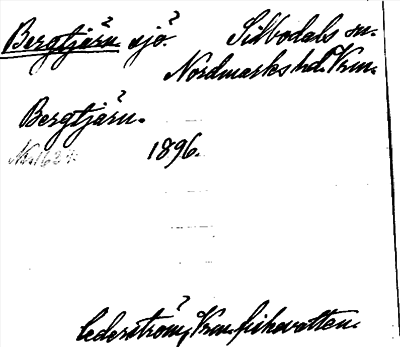 Bergtjärn. sjö. Silbodals sn.
Nordmarks hd. Vrm.
Bergtjärn.
1896.
Cederström, Vrm. fiskevatten.